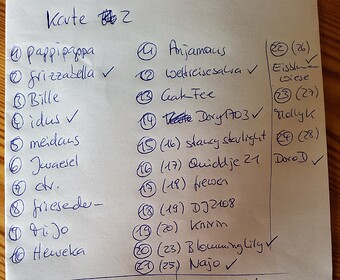 Karte 2
1 pappipappa
2 frizzabella ✓
3 Bille
4 idus ✓
5 meidans
6 Juraesel
7 etr.
8 frieseder-
9 di jo
10 Heureka
11 Anjamaus
12 weltreisesalva ✓
13 CrakFee
14 DoryAD3 ✓
15 (16) stancy starlight
16 (17) Quiddje 21
17 (18) frewen
18 (19) DJ2108
19 (20) Knirin
20 (23) Bloomminglily ✓
21 (25) Najo ✓
22 (26)
wiese
23 (27)
MollyK
24 (28)
DoroD ✓